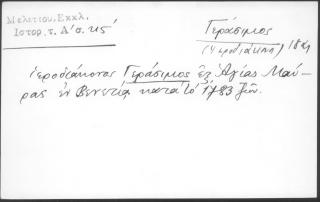 Μελετίου, Εκκλ.
Ιστορ. τ. Α´ σ. κς´
Γεράσιμος
(ιεροδιάκων) 18 αι.
ιεροδιάκονος Γεράσιμος ἐξ Ἁγίας Μαύ-
ρας ἐν Βενετίᾳ κατὰ τὸ 1783 ζῶν.